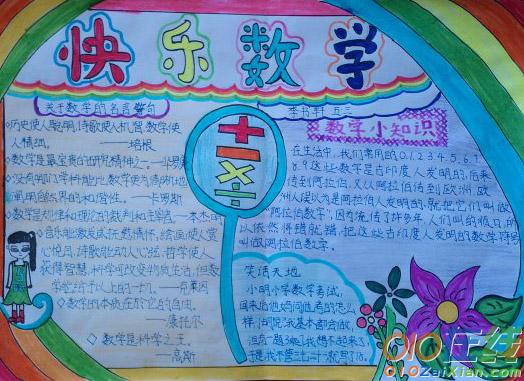 快乐数学
关于数学的名言警句
◇历史使人聪明,诗歌使人机智,数学使
人精细。 ——培根
◇数学是最宝贵的研究精神之一。
◇没有哪门学科能比数学更为清晰地
阐明自然界的和谐性。——卡罗斯
◇数学是规律和理论的裁判和主宰者——本杰明
◇音乐能激发或抚慰情怀,绘画使人赏
心悦目,诗歌能动人心弦,哲学使人
获得智慧,科学可改善物质生活,但数
学能给予以上的一切。——克莱因
◇数学的本质在於它的自由。
——康托尔
◇数学是科学之王。
——高斯
+−×÷
李书轩 五三
数学小知识
在生活中,我们常用的0.1.2.3.4.5.6.7
8.9这些数字是古印度人发明的,后来
传到阿拉伯,又从阿拉伯传到欧洲,欧
洲人误以为是阿拉伯人发明的,就把它们叫做
“阿拉伯数字”,因为流传了许多年,人们叫的很顺,所
以依然将错就错,把这些古印度人发明的数字符号
叫做阿拉伯数字。
笑话天地
小明小学数学考试,
回来后他妈问他考的怎么
样,小明说:我基本都会做,
但有一题3乘7我想不起来了,
于是我不管三七二十八就写了18。
010在线
010ZaiXian.com